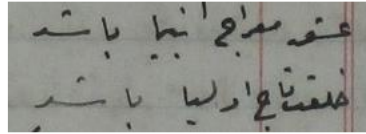 عشق معراج انبیا باشد
تاج اولیا باشد